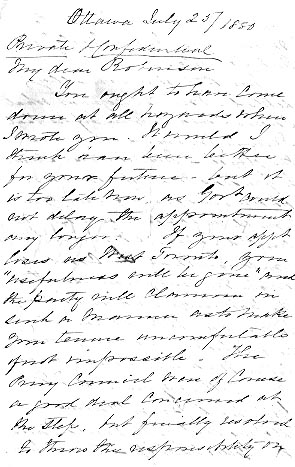 Ottawa July 25/1880
Private & Confidential
My dear Robinson
You ought to have come
down at all hazards when
I wrote you. It would I
think have been better
for your future – but it
is too late now, as Govt could
not delay the appointment
any longer. If your appt
loses us West Toronto, your
"usefulness will be gone" and
the party will clamour in
such a manner as to make
your tenure uncomfortable
if not impossible. The
Privy Council were of course
a good deal concerned at
the step, but finally resolved
to throw the responsibility on